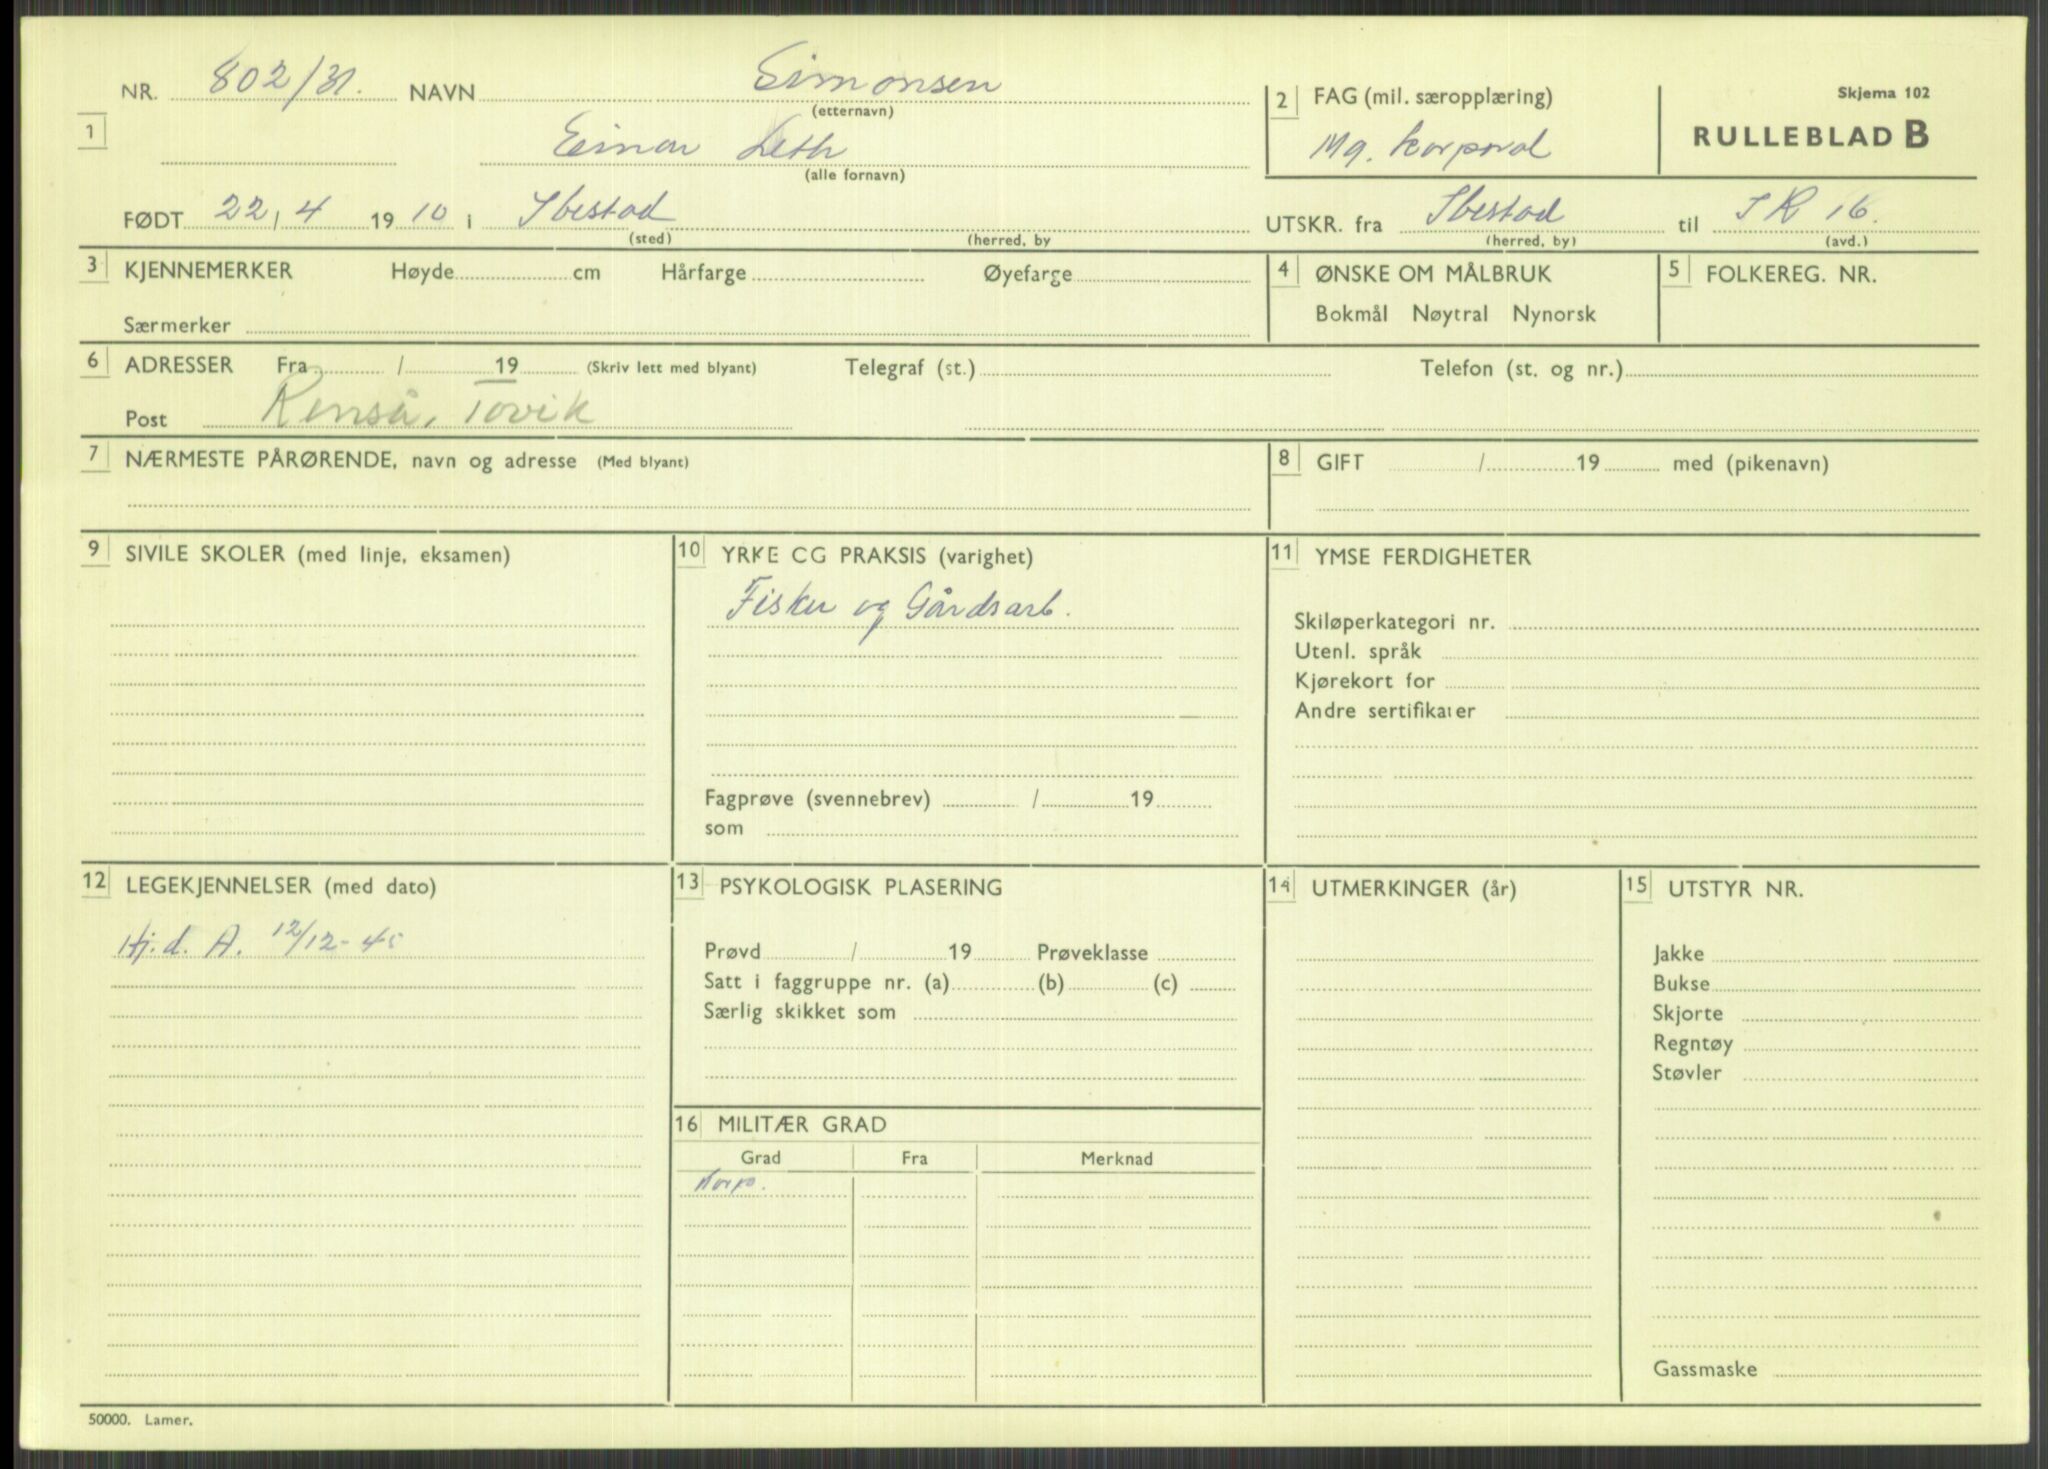 Skjema 102
RULLEBLAD B
1 NR. 802/31. NAVN Simonsen
(etternavn)
Einar Leth
(alle fornavn)
2 FAG (mil. særopplæring)
Mg. korporal
FØDT 22/4 1910 i Ibestad
(sted) (herred, by
UTSKR. fra Ibestad til IR 16.
(herred, by) (avd.)
3 KJENNEMERKER Høyde cm Hårfarge Øyefarge
Særmerker
4 ØNSKE OM MÅLBRUK
Bokmål Nøytral Nynorsk
5 FOLKEREG. NR.
6 ADRESSER Fra / 19 (Skriv lett med blyant) Telegraf (st.) Telefon (st. og nr.)
Post Renså, Tovik
7 NÆRMESTE PÅRØRENDE, navn og adresse (Med blyant)
8 GIFT / 19 med (pikenavn)
9 SIVILE SKOLER (med linje, eksamen)
10 YRKE CG PRAKSIS (varighet)
Fisker og Gårdsarb.
Fagprøve (svennebrev) / 19
som
11 YMSE FERDIGHETER
Skiløperkategori nr.
Utenl. språk
Kjørekort for
Andre sertifikater
12 LEGEKJENNELSER (med dato)
Hj. d. A. 12/12-45
13 PSYKOLOGISK PLASERING
Prøvd / 19 Prøveklasse
Satt i faggruppe nr. (a) (b) (c)
Særlig skikket som
14 UTMERKINGER (år)
15 UTSTYR NR.
Jakke
Bukse
Skjorte
Regntøy
Støvler
Gassmaske
16 MILITÆR GRAD
Grad Fra Merknad
Korp.
50000. Lamer.